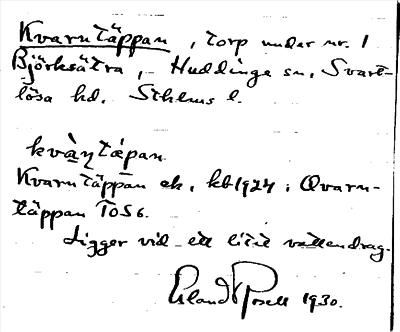 Kvarntäppan, torp under nr. 1
Björksätra, Huddinge sn, Svart-
lösa hd. Sthlms l.
kvàɳtäpan.
Kvarntäppan ek, kb 1924; Qvarn-
täppan TOS 6.
Ligger vid ett litet vattendrag.
Erland Rosell 1930.